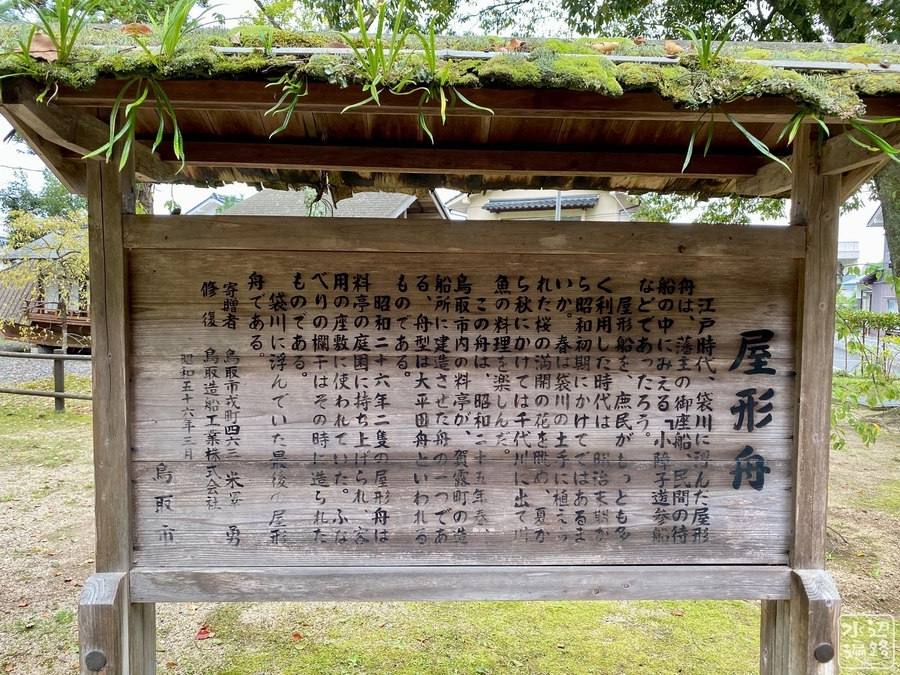 屋形舟
江戸時代、袋川に浮んだ屋形
舟は、藩主の御座船、民間の待
船の中にみえる「小障子道参船
などであったろう。
屋形船を、庶民がもっとも多
く利用した時代は、明治末期か
ら昭和初期にかけてではあるま
いか。春は袋川の土手に植えら
れた桜の満開の花を眺め、夏か
ら秋にかけては千代川に出て川
魚の料理を楽しんだ。
この舟は、昭和二十五年春、
鳥取市内の料亭が、賀露町の造
船所に建造させた舟の一つであ
る、舟型は大平囲舟といわれる
ものである。
昭和二十六年二隻の屋形舟は
料亭の庭園に持ち上げられ、客
用の座敷に使われていた。ふな
べりの欄干はその時に造られた
ものである。
袋川に浮んでいた最後の屋形
舟である。
寄贈者 鳥取市戎町四六三 米 勇
修復 鳥取造船工業株式会社
昭和五十六年三月
鳥取市
水辺遍路